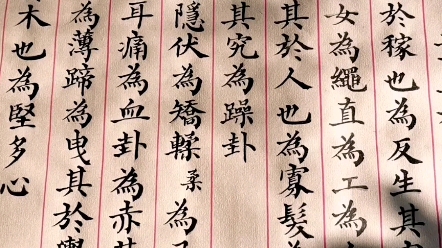 於稼也為反生其
女為繩直為工為
其於人也為寡髮
其究為躁卦
隱伏為矯輮柔為
耳痛為血卦為赤其
為薄蹄為曳其於輿
木也為堅多心